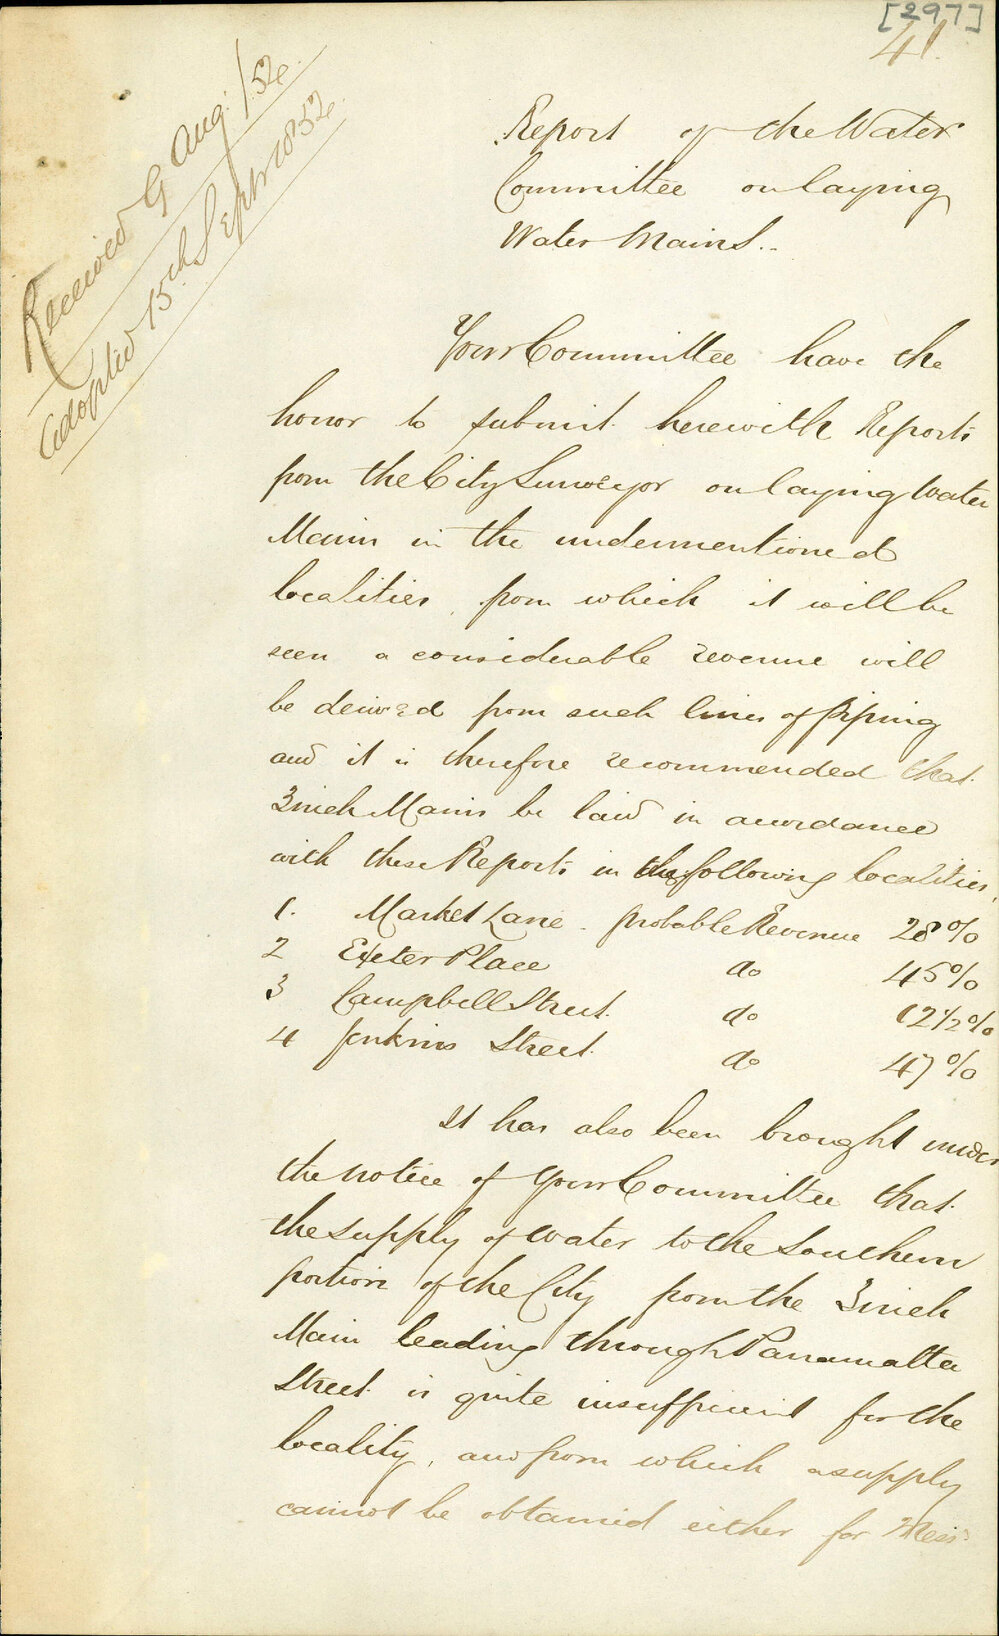 [297]
41.
Received 9 Aug: /52.
Adopted 15th Septr 1852.
Report of the Water
Committee on laying
Water Mains..
Your Committee have the
honor to submit herewith Reports
from the City Surveyor on laying Water
Mains in the undermentioned
localities, from which it will be
seen a considerable revenue will
be derived from such lines of Piping
and it is therefore recommended that
3 inch Mains be laid in accordance
with these Reports in the following localities,
1. Market Lane. probable Revenue 28%
2 Exeter Place do 45%
3 Campbell Street. do 12 1/2%
4 Jenkins Street. do 47%
It has also been brought under
the notice of Your Committee that
the supply of water to the Southern
portion of the City from the 3 inch
Main leading through Parramatta
Street is quite insufficient for the
locality, and from which a supply
cannot be obtained either for